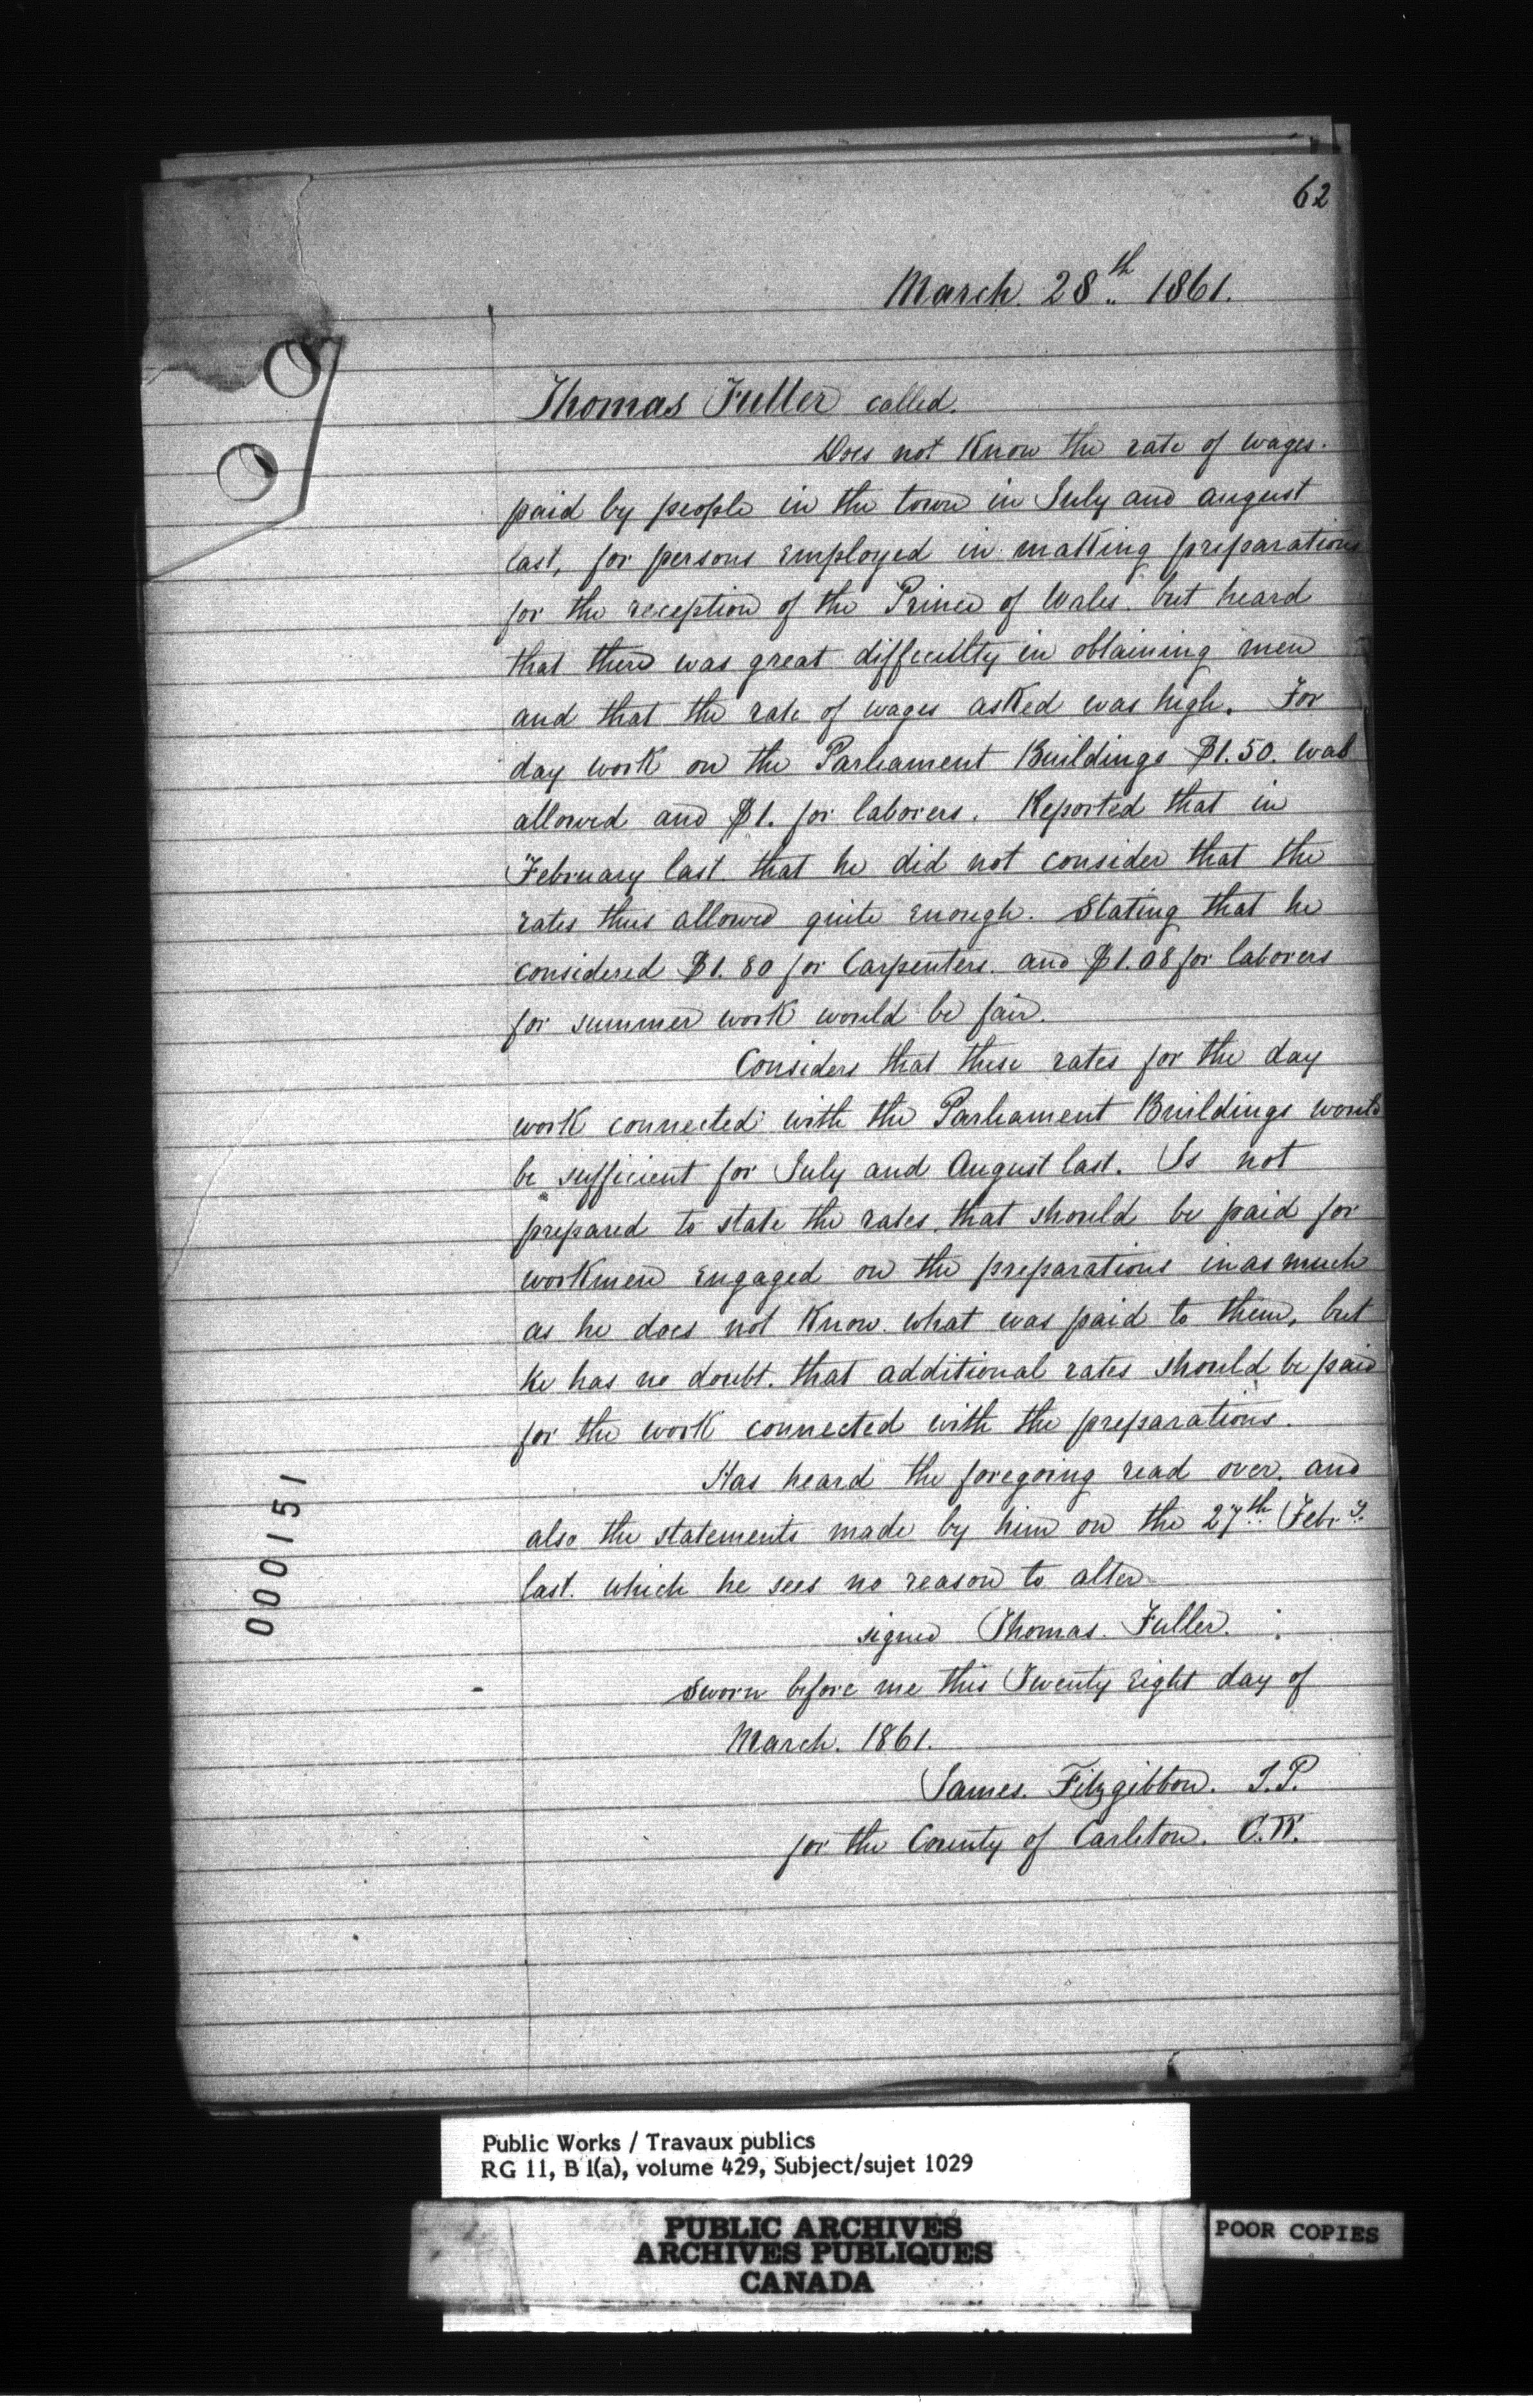 62
March. 28th 1861.
Thomas Fuller called.
Does not Know the rate of wages.
paid by people in the town in July and august
last, for persons employed in making preparations
for the reception of the Prince of Wales. but heard
that there was great difficulty in obtaining men
and that the rate of wages asked was high. For
day work on the Parliament Buildings $1.50. was
allowed and $1. for laborers. Reported that in
February last that he did not consider that the
rates thus allowed quite enough. Stating that he
considered $1.80 for Carpenters. and $1.08 for laborers
for summer work would be fair.
Considers that these rates for the day
work connected with the Parliament Buildings would
be sufficient for July and August last. Is not
prepared to state the rates that should be paid for
workmen engaged on the preparations in as much
as he does not Know. what was paid to them, but
he has no doubt. that additional rates should be paid
for the work connected with the preparations.
Has heard the foregoing read over. and
also the statements made by him on the 27th Febry
last. which he sees no reason to alter
signed Thomas. Fuller.
Sworn before me this Twenty eight day of
March. 1861.
James. Fitzgibbon. J.P.
for the County of Carleton. C.W.
000151
Public Works / Travaux publics
RG 11, B 1(a), volume 429, Subject/sujet 1029
PUBLIC ARCHIVES
ARCHIVES PUBLIQUES
CANADA
POOR COPIES